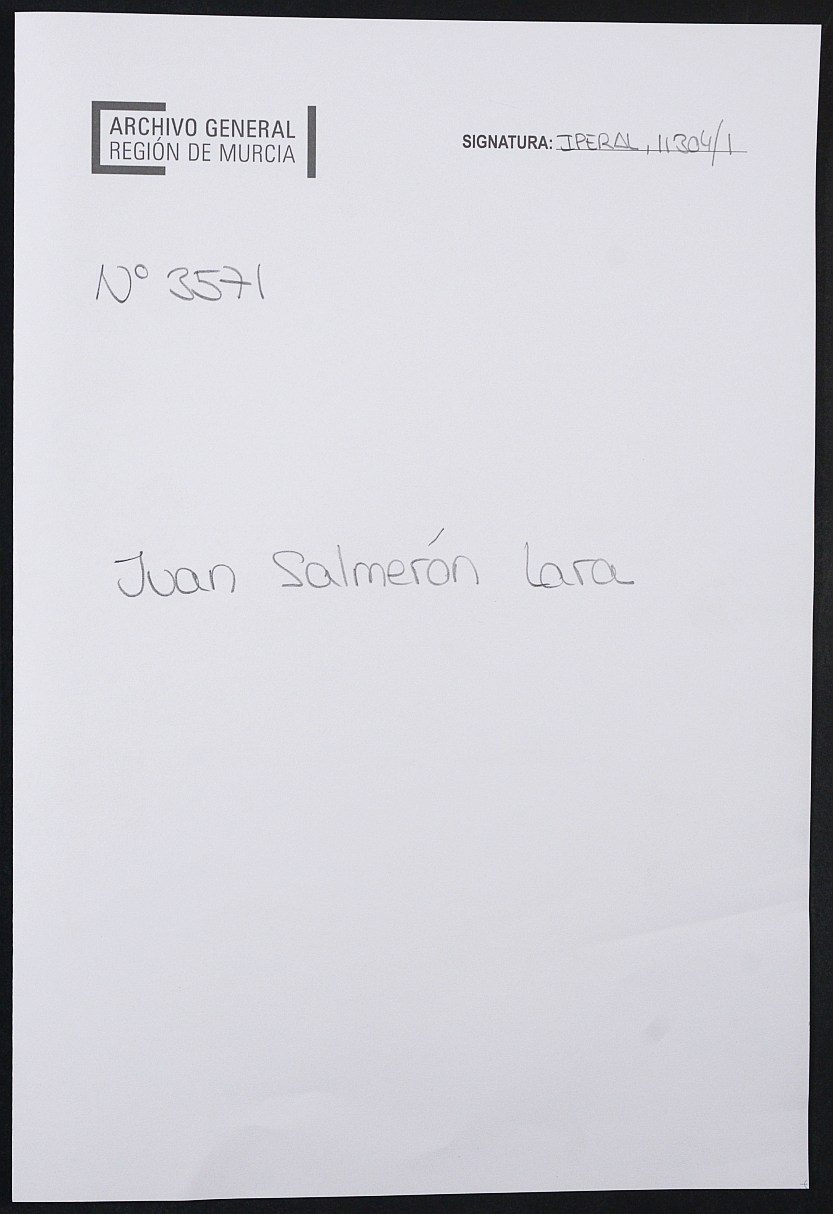 ARCHIVO GENERAL
REGIÓN DE MURCIA
SIGNATURA: IPERAL, 11304/1
Nº 3571
Juan Salmerón Lara